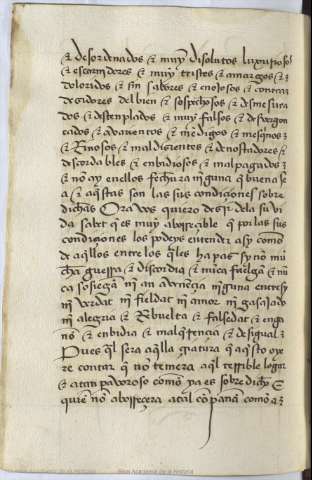 & desordenados & muy disolutos luxuriosos
& escarnidores & muy tristes & amargos &
doloridos & sin sabores & enojosos & contra
desidores del bien & sospechosos & desmesura
dos & destenplados & muy falsos & desvergon
çados & avarientos & mēdigos & mesqinos &
& Rinosos & maldisientes & denostadores &
discordables & enbidiosos & mal pagados
& no ay en ellos fechura njguna q buena se
a & aqstas son las sus condiçiones sobre
dichas Ora vos quiero desir dela su vi
da sabet q es muy aborresçible q por las sus
condiçiones los podeys entender asy como
de aqllos entre los qles ha pas sy no mu
cha guerra & discordia & nūca fuelgā & nū
ca sosiegā nj an avenēçia njguna entresy
nj verdat nj fieldat nj amor nj gasajado
nj alegria & Rebuelta & falsedat & enga
nos & enbidia & malqrençia & desigual
Pues ql sera aqlla criatura q aqsto oye
re contar q no temera aql terrible logar
& atan pavoroso como ya es sobre dicho E
quien no aborreçera atal conpana como
Real Academia de la Historia